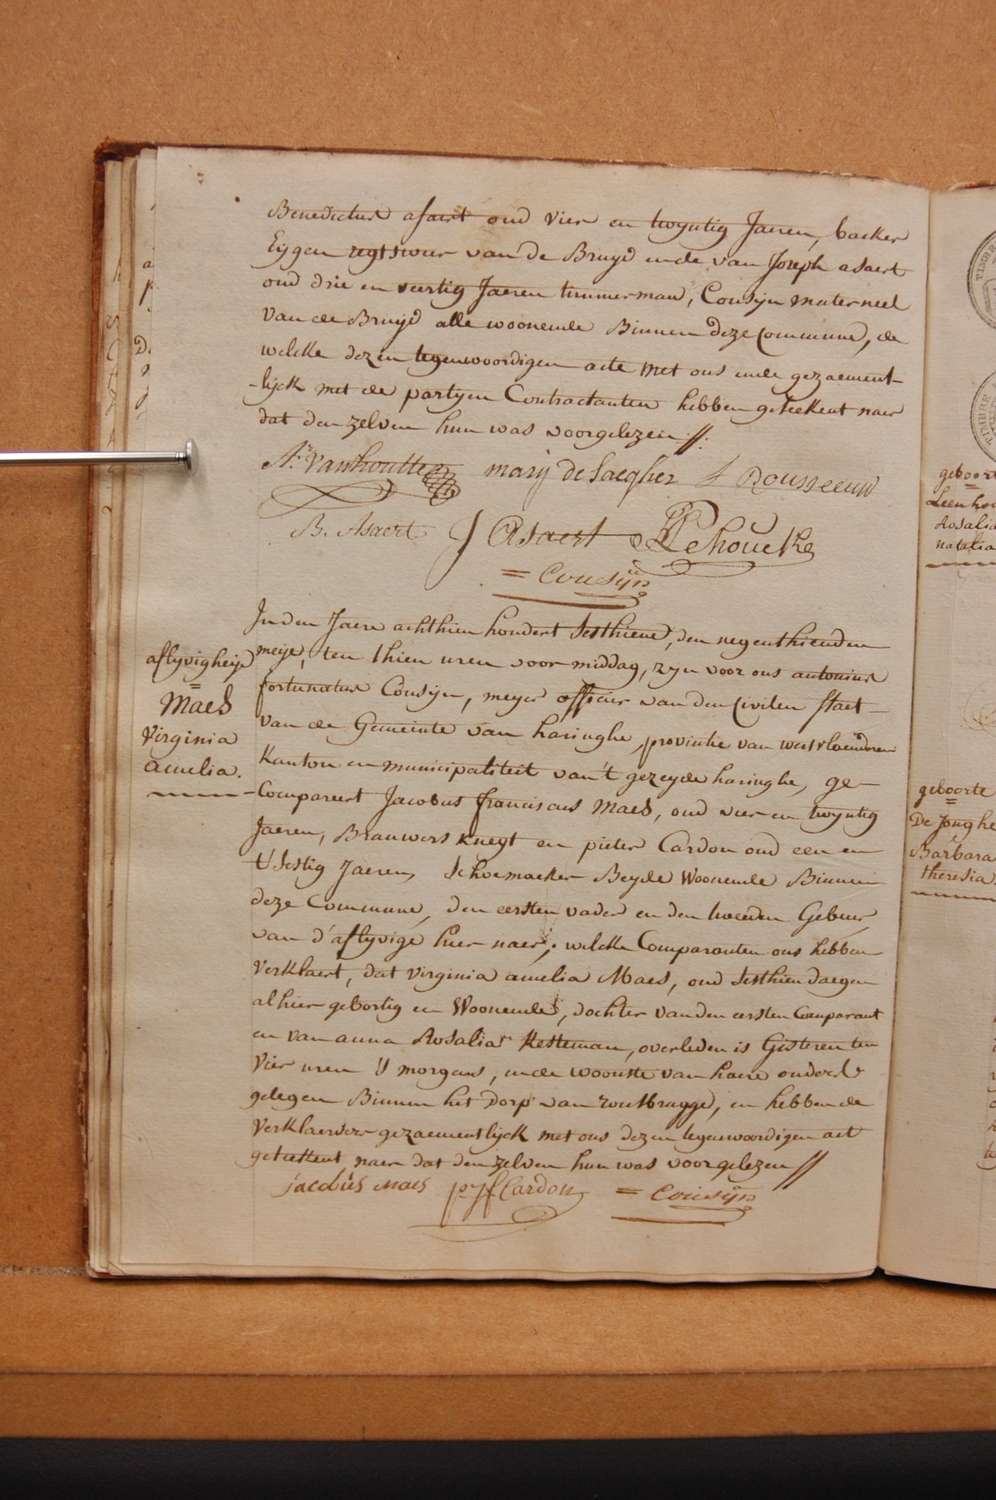 Benedictus asaert oud vier en twyntig Jaeren, backer
Eijgen regtsweer van de Bruijd ende van Joseph asaert
oud drie en veertig Jaeren timmerman, Cousijn materneel
van de Bruijd alle woonende Binnen deze Commune, de
welcke dezen tegenwoordigen acte met ons ende gezaement-
-lijck met de partyen Contractanten hebben geteekent naer
dat den zelven hun was voorgelezen //.
Vanhoutte marij de Saegher Rousseeuw
B. Asaert J Asaert Dehoucke
= Cousijn
aflyvigheijd
=
Maes
Virginia
amelia.
In den Jaere achthien hondert Sesthiene, den negenthienden
meije, ten thien uren voor middag, zyn voor ons antonius
fortunatus Cousijn, meijer officier van den Civilen staet
van de Gemeinte van haringhe, provintie van westvlaendren
Kanton en municipaliteit van't gezeyde haringhe, ge-
-Compareert Jacobus franciscus Maes, oud vier en twyntig
Jaeren, Brauwers knegt en pieter Cardon oud een en
t'Sestig Jaeren, Schoemaeker Beyde Woonende Binnen
deze Commune, den eersten vader en den tweeden Gebeur
van d'aflyvige hier naer; welcke Comparanten ons hebben
Verklaert, dat virginia amelia Maes, oud Sesthien daegen
alhier gebortig en Woonende, dochter van den eersten Comparant
en van anna Rosalia Kesteman, overleden is Gisteren ten
Vier uren 's morgens, in de woonste van haere ouders
gelegen Binnen het Dorp van rousbrugge, en hebben de
Verklaerders gezaementlijck met ons dezen tegenwoordigen act
geteekent naer dat den zelven hun was voorgelezen //
jacobus Maes Cardon = Cousijn
geboorte
Rosalia
natalia
geboorte
=
De Jonghe
Barbara
theresia